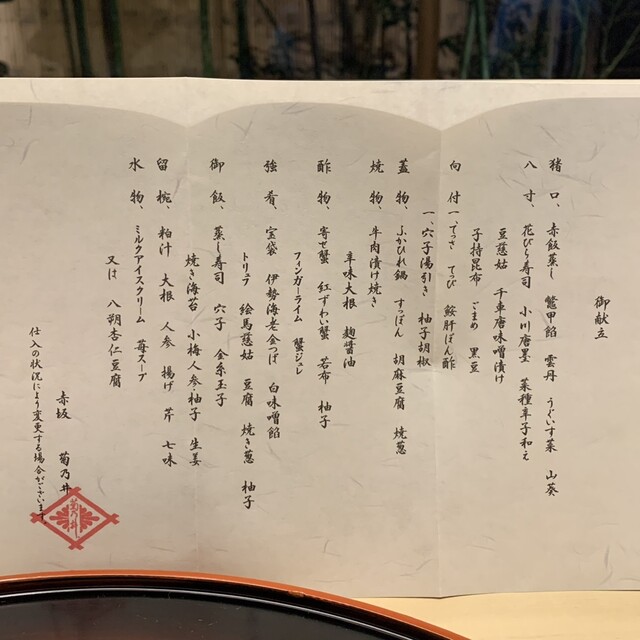 御献立
猪口、赤飯蒸し 鼈甲餡 雲丹 うぐいす菜 山葵
八寸、花びら寿司 小川唐墨 菜種辛子和え
豆慈姑 千車唐味噌漬け
子持昆布 ごまめ 黒豆
向付一、てっさ てっぴ 鮟肝ぽん酢
一、穴子湯引き 柚子胡椒
蓋物、ふかひれ鍋 すっぽん 胡麻豆腐 焼葱
焼物、牛肉漬け焼き
辛味大根 麹醤油
酢物、寄せ蟹 紅ずわい蟹 若布 柚子
フィンガーライム 蟹ジュレ
強肴、宝袋 伊勢海老金つば 白味噌餡
トリュフ 絵馬慈姑 豆腐 焼き葱 柚子
御飯、蒸し寿司 穴子 金糸玉子
焼き海苔 小梅人参・柚子 生姜
留椀、粕汁 大根 人参 揚げ 芹 七味
水物、ミルクアイスクリーム 苺スープ
又は 八朔杏仁豆腐
赤坂 菊乃井
仕入の状況により変更する場合がございます
菊乃井